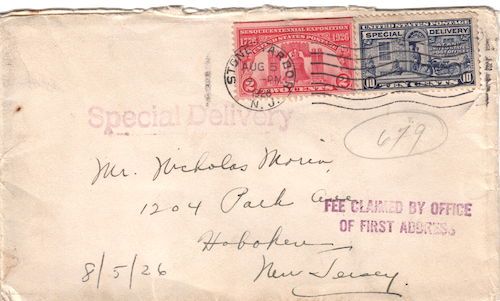 SESQUICENTENNIAL EXPOSITION
1776 1926
UNITED STATES POSTAGE
2 2
TWO CENTS
UNITED STATES POSTAGE
SPECIAL DELIVERY
10 10
TEN CENTS
STONE HARBOR
AUG 5
PM
1926
N. J.
Special Delivery
679
Mr. Nicholas Morin,
1204 Park Ave
FEE CLAIMED BY OFFICE
OF FIRST ADDRESS
Hoboken
8/5/26
New Jersey.